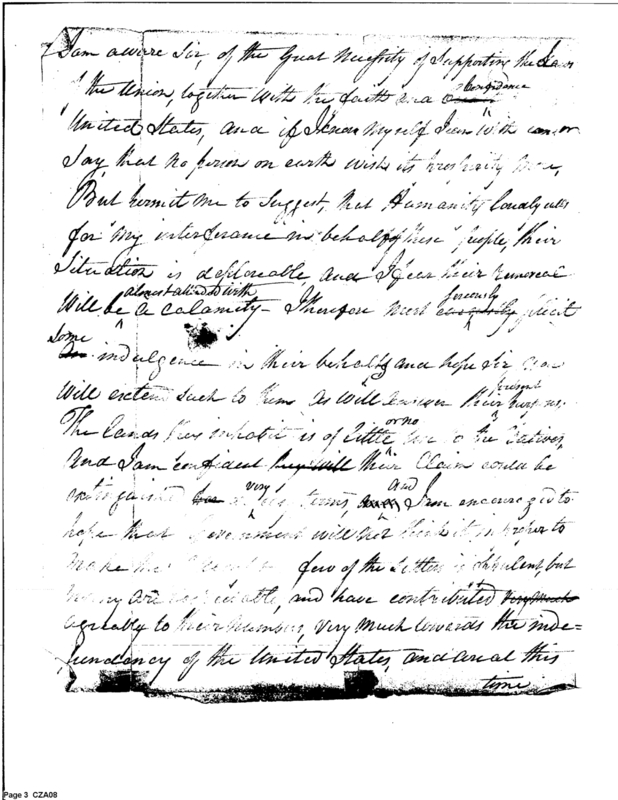 I am aware Sir, of the Great Necessity of Supporting the Laws
of the Union, together with the faith and Confidence
United States, and if I know myself I can with candor
Say, that no person on earth wish its prosperity more,
But permit me to Suggest, that Humanity loudly calls
for my interferance in behalf of these people, their
Situation is deploreable, and I fear their removeal
Will be almost attended with a calamity - I therefore most earnestly seriously solicit
Some indulgence in their behalf and hope Sir you
will extend such to them as will answer their present purpose.
The lands they inhabit is of little or no use to the Natives,
And I am confident they will their Claim could be
extinguished very terms, and I am encouraged to
hope that Government will not think it improper to
make this few of the Settlers is but
many are respectable, and have contributed very much
agreably to their number, very much towards the inde=
pendancy of the United States, and are at this
time
Page 3 CZA08